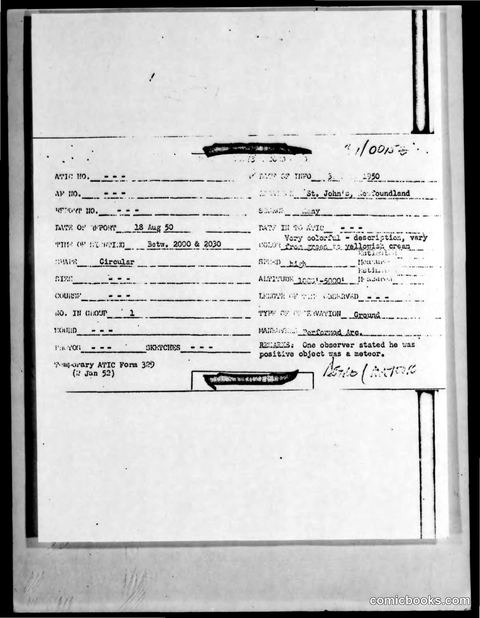 31/0015
ATIC NO. - - - DATE OF INFO 3 1950
AF NO. - - - St. John's, Newfoundland
REPORT NO. - - - SOURCE Many
DATE OF REPORT 18 Aug 50 DATE IN TO ATIC - - -
TIME OF SIGHTING Betw. 2000 & 2030 COLOR Very colorful - description, vary
from green to yellowish cream
SHAPE Circular SPEED high
SIZE - - - ALTITUDE 1000'-5000'
COURSE - - - LENGTH OF TIME OBSERVED - - -
NO. IN GROUP 1 TYPE OF OBSERVATION Ground
SOUND - - - MANEUVERS Performed Arc.
PHOTOS - - - SKETCHES - - - REMARKS: One observer stated he was
positive object was a meteor.
Temporary ATIC Form 329
(2 Jan 52)
comicbooks.com